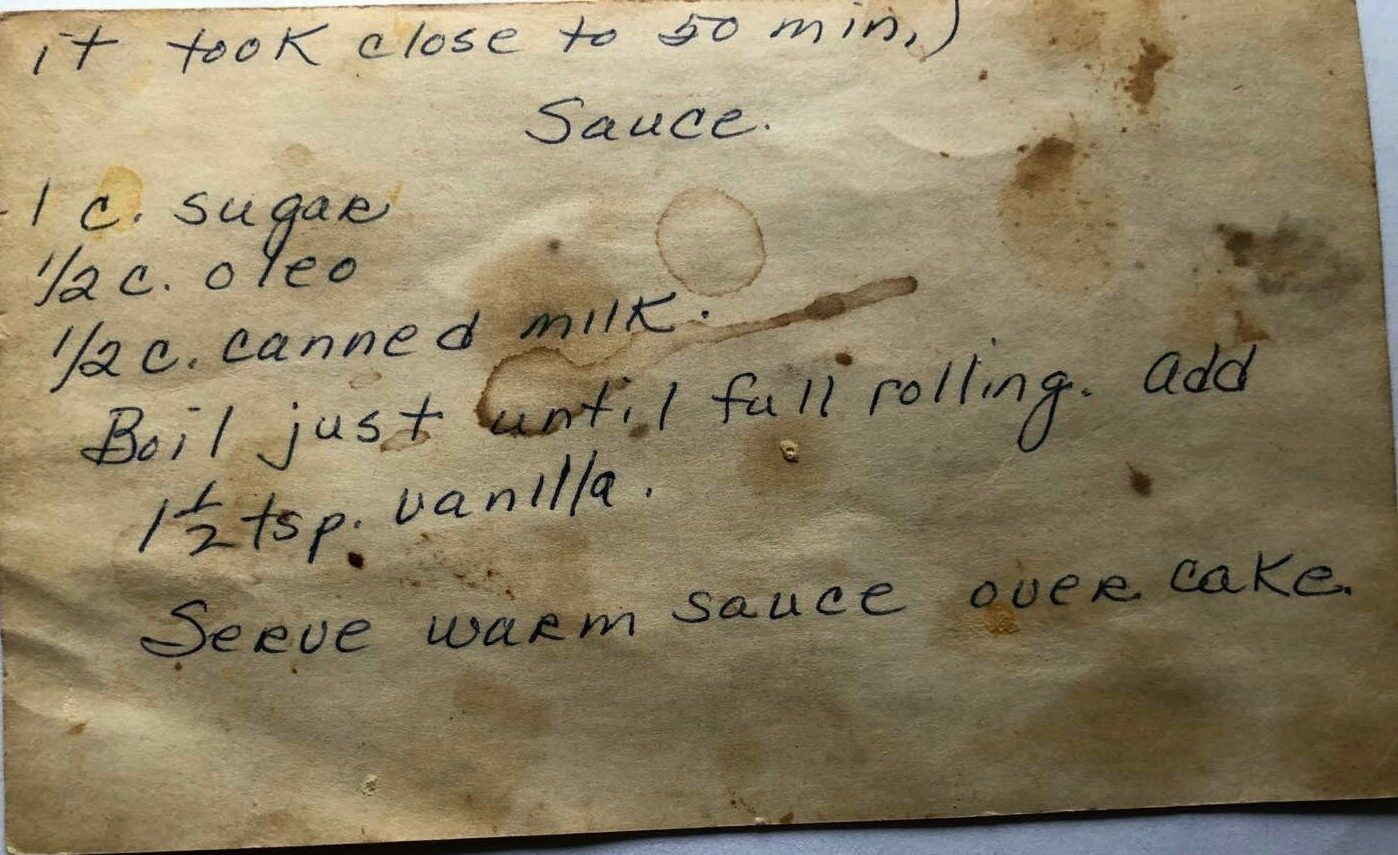 it took close to 50 min.)
Sauce.
1 c. sugar
1/2 c. oleo
1/2 c. canned milk.
Boil just until full rolling. Add
1 1/2 tsp. vanilla.
Serve warm sauce over cake.